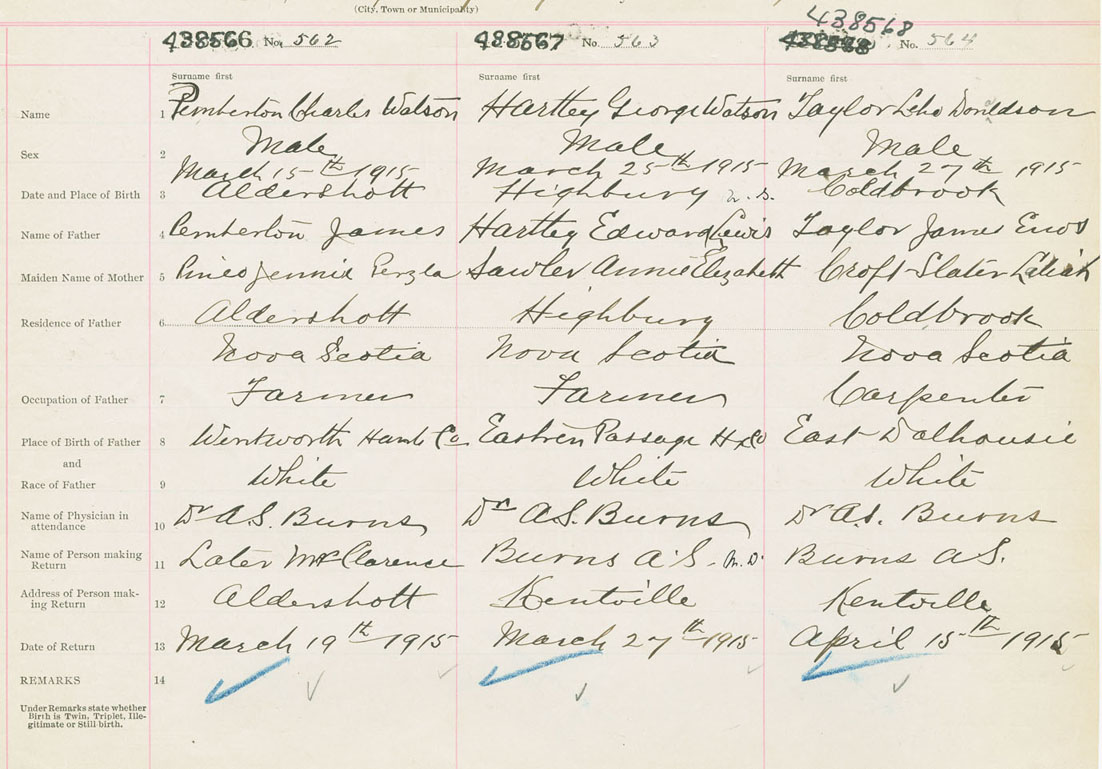 (City, Town or Municipality)
438568
438566 No. 562 438567 No. 563 No. 564
Surname first Surname first Surname first
Name 1 Pemberton Charles Watson Hartley George Watson Taylor Donaldson
Sex 2 Male Male Male
March 15th 1915 March 25th 1915 March 27th 1915
Date and Place of Birth 3 Aldershott Highbury N.S. Coldbrook
Name of Father 4 Pemberton James Hartley Edward Lewis Taylor James Enos
Maiden Name of Mother 5 Pineo Jennie Sawler Annie Elizabeth Croft Slater
Residence of Father 6 Aldershott Highbury Coldbrook
Nova Scotia Nova Scotia Nova Scotia
Occupation of Father 7 Farmer Farmer Carpenter
Place of Birth of Father 8 Wentworth Co Eastren Passage Hx Co East Dalhousie
and
Race of Father 9 White White White
Name of Physician in
attendance 10 Dr A.S. Burns Dr A.S. Burns Dr A.S. Burns
Name of Person making
Return 11 Clarence Burns A.S. M.D. Burns A.S.
Address of Person mak-
ing Return 12 Aldershott Kentville Kentville
Date of Return 13 March 19th 1915 March 27th 1915 April 15th 1915
REMARKS 14
Under Remarks state whether
Birth is Twin, Triplet, Ille-
gitimate or Still-birth.